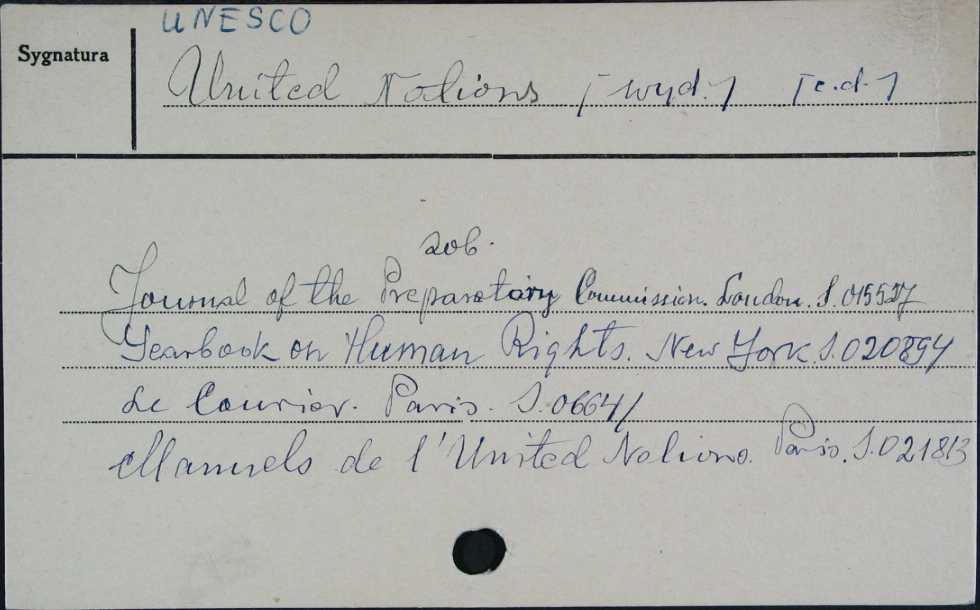 UNESCO
Sygnatura
United Nations [wyd.] [c.d.]
zob.
Journal of the Preparatory Commission. London. S.015527
Yearbook on Human Rights. New York. S.020894
Le Courier. Paris. S.06641
Manuels de l'United Nations. Paris. S.021813